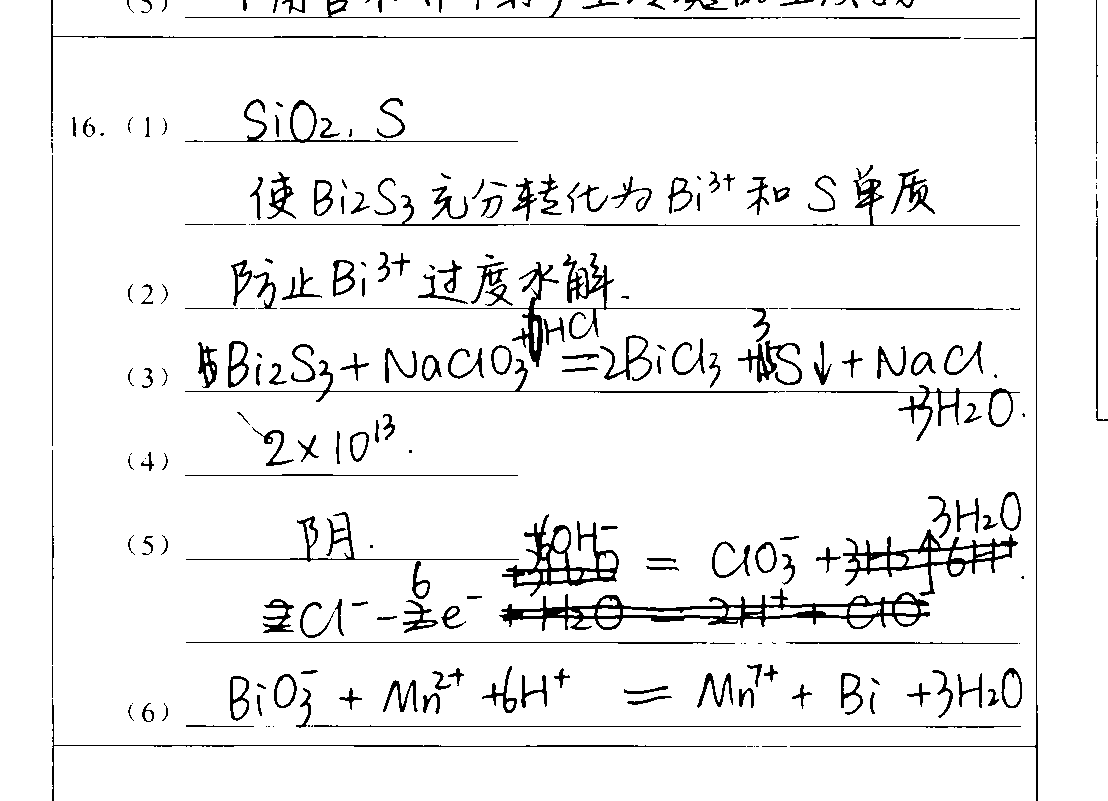 (5)
16. (1) SiO2、S
使Bi2S3充分转化为Bi³⁺和S单质
(2) 防止Bi³⁺过度水解.
(3) Bi2S3 + NaClO3 + HCl = 2BiCl3 + 3S↓ + NaCl.
+3H2O.
(4) 2×10¹³.
(5) 阴.
Cl⁻ - 6e⁻ + 6OH⁻ = ClO3⁻ + 3H2O
(6) BiO3⁻ + Mn²⁺ +6H⁺ = Mn⁷⁺ + Bi +3H2O